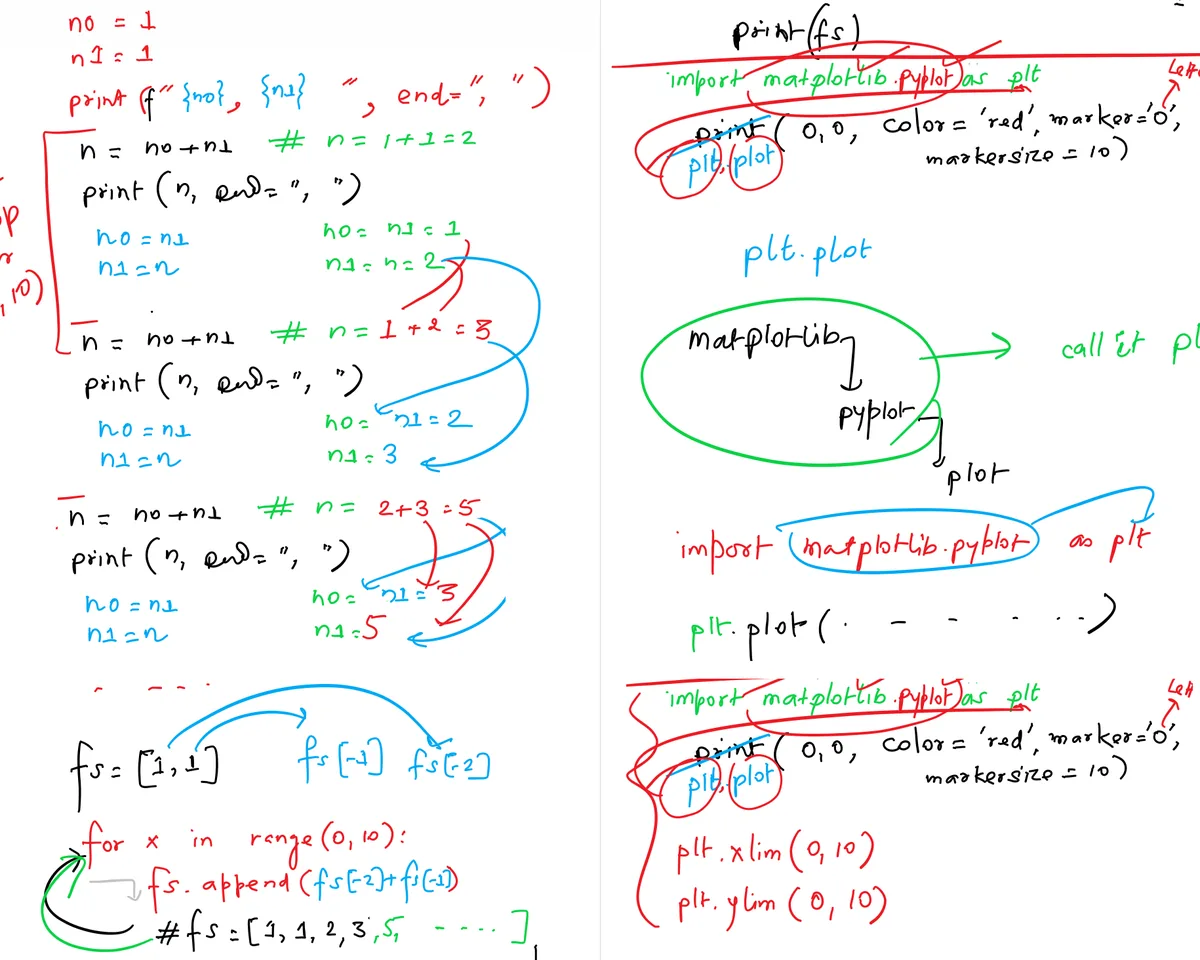 no = 1
n1 = 1
print (f" {no}, {n1} ", end=", ")
n = no+n1 # n = 1+1=2
print (n, end=", ")
no = n1 no = n1 = 1
n1 = n n1 = n = 2
, 10)
n = no+n1 # n = 1+2 = 3
print (n, end=", ")
no = n1 no = n1 = 2
n1 = n n1 = 3
n = no+n1 # n = 2+3 = 5
print (n, end=", ")
no = n1 no = n1 = 3
n1 = n n1 = 5
- - - .
fs = [1, 1] fs[-1] fs[-2]
for x in range(0, 10):
fs. append (fs[-2]+fs[-1])
# fs = [1, 1, 2, 3, 5, - - - - ]
print(fs)
import matplotlib.pyplot as plt
print ( 0,0, color = 'red', marker='o',
plt.plot markersize = 10)
plt.plot
matplotlib
call it pl
pyplot
plot
import matplotlib.pyplot as plt
plt. plot (. - - . . .)
import matplotlib.pyplot as plt
print ( 0,0, color = 'red', marker='o',
plt.plot markersize = 10)
plt. xlim (0, 10)
plt. ylim (0, 10)